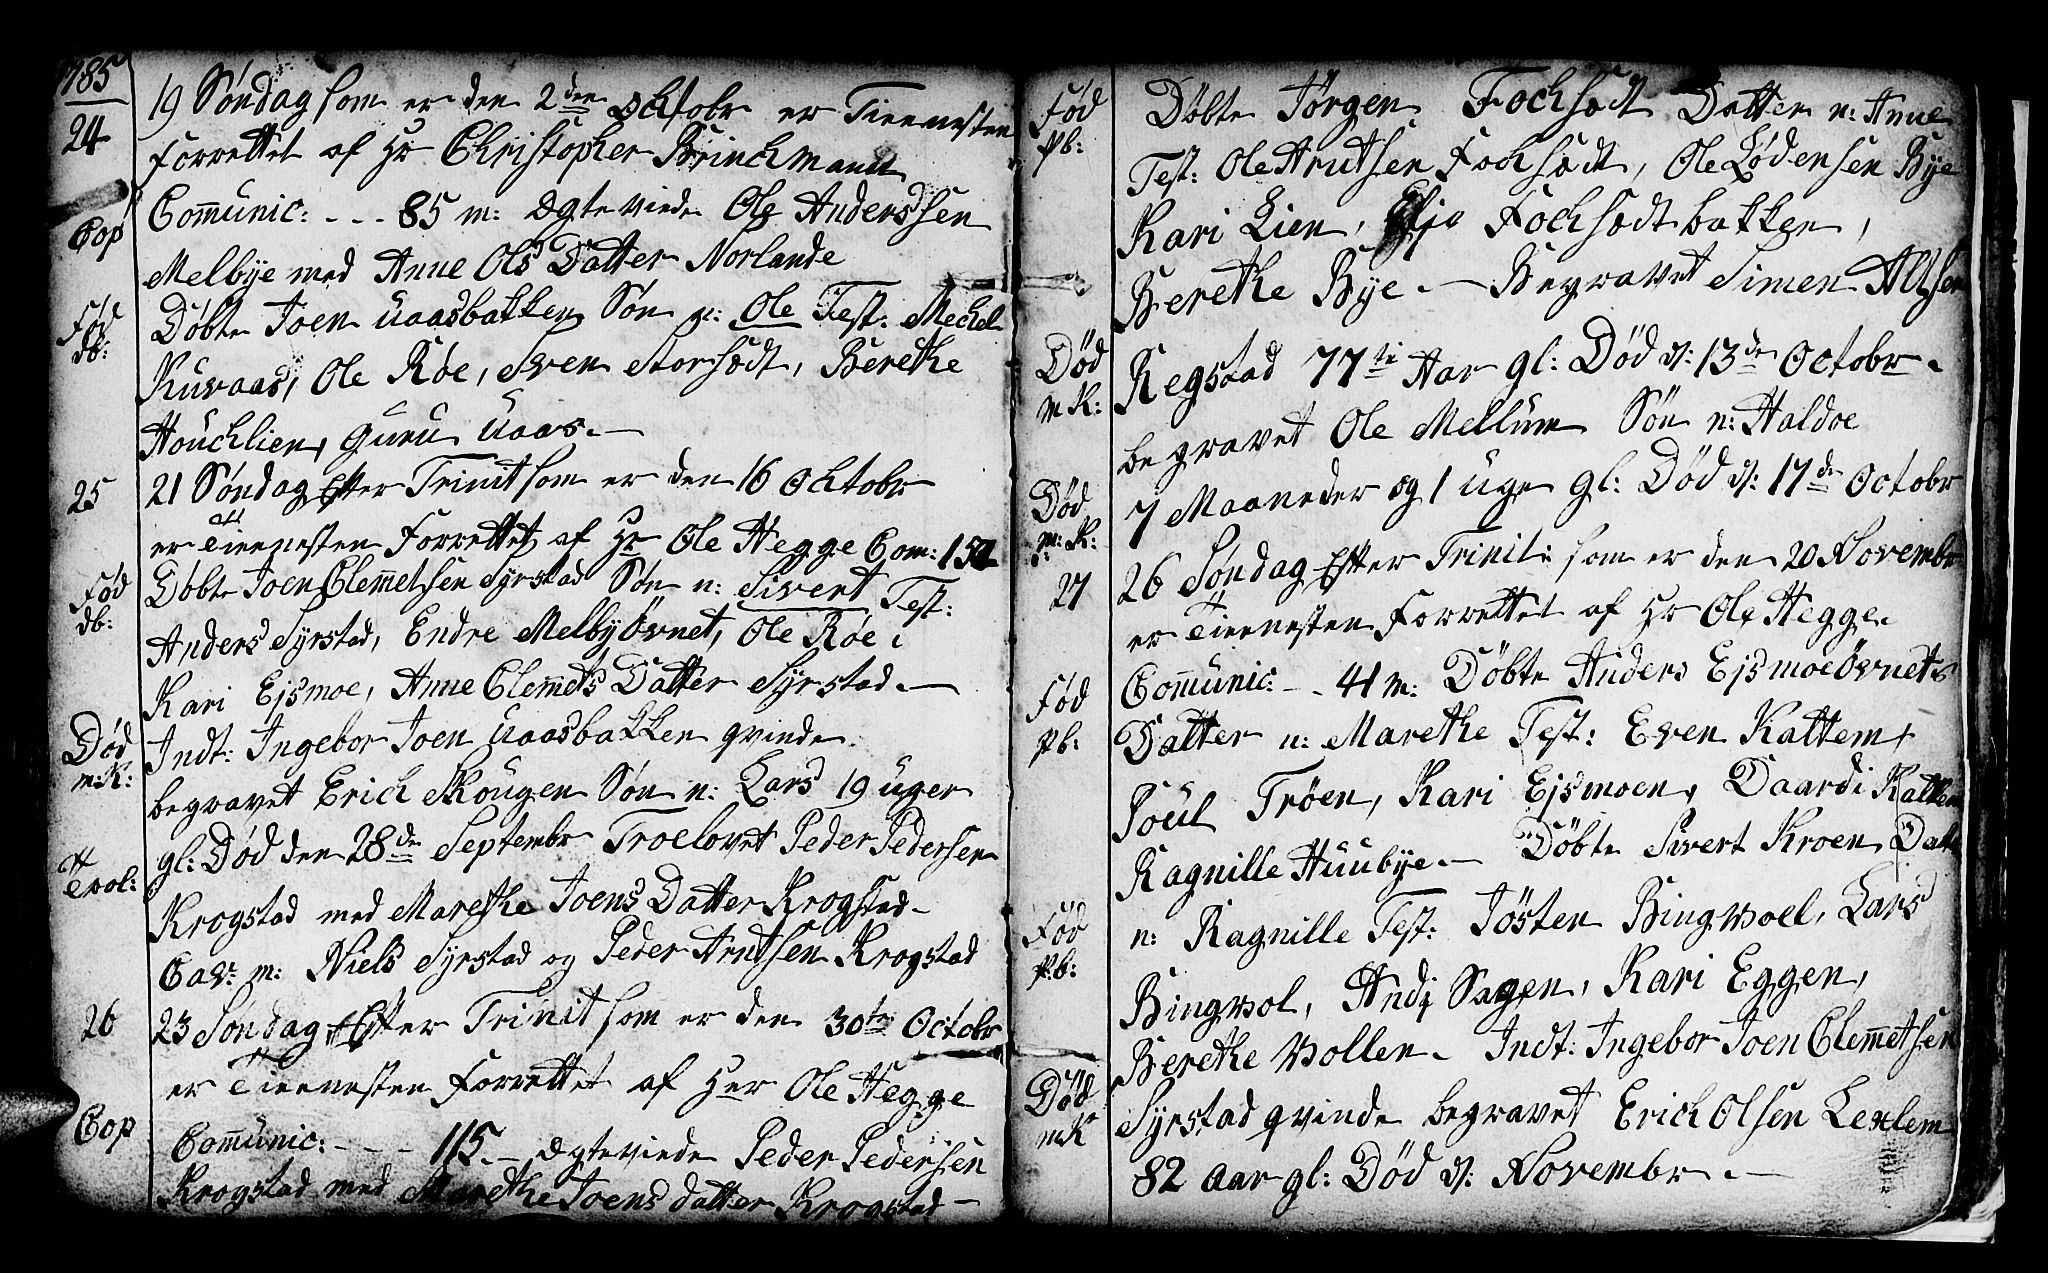 1785
24
19 Søndag som er den 2den Ochtobr er Tienesten
Forrettet af Hr Christopher Brinchmand
Cop
Communic: - - - 85 m: Ægteviede Ole Anderssen
Melbye med Anne Ols Datter Norlande
Fød
db:
Døbte Joen Uaasbakken Søn n: Ole Test: Mechel
Kuvaas, Ole Røe, Sven Storsødt, Berethe
Houchlien, Guru Uaas. —
25
21 Søndag Efter Trinit som er den 16 Ochtobr
er Tienesten Forrettet af Hr Ole Hegge Com: 152
Fød
db:
Døbte Joen Clemmetsen Syrstad Søn n: Sivert Test:
Anders Syrstad, Endre Melbyøvnet, Ole Røe,
Kari Ejsmoe, Anne Clemmets Datter Syrstad. —
Indt: Ingebor Joen Uaasbakken qvinde.
Død
m:K:
begravet Erich Skougen Søn n: Lars 19 uger
gl: Død den 28de Septembr Troelovet Peder Pedersen
Trol:
Krogstad med Marethe Joens Datter Krogstad -
Cav: m: Niels Syrstad og Peder Arntsen Krogstad
26
23 Søndag Efter Trinit som er den 30te Octobr
er Tienesten Forrettet af Her Ole Hegge
Cop
Communic: - - - 115. - Ægteviede Peder Pedersen
Krogstad med Marethe Joens datter Krogstad —
Fød
pb:
Døbte Jörgen Fochsødt Datter n: Anne
Test: Ole Arntsen Fochsødt, Ole Lødensen Bye
Kari Lien, Fochsødtbakken,
Berethe Bye. — Begravet Simen
Død
m K:
Regstad 77ti Aar gl: Død d: 13de Octobr.
begravet Ole Mellum Søn n: Haldoe
Død
m:K:
7 Maaneder og 1 uge gl: Død d: 17de Octobr
27
26 Søndag Efter Trinit: som er den 20 Novembr
er Tienesten Forrettet af Hr Ole Hegge.
Fød
pb:
Communic: - - 41 m: Døbte Anders Ejsmoeøvnets
Datter n: Marethe Test: Even Kattem,
Poul Trøen, Kari Ejsmoen, Daardi Kattem
Ragnille Huubye. — Døbte Sivert Kroen Datter
Fød
pb:
n: Ragnille Test: Jösten Bingvoel, Lars
Bingvol, Sagen, Kari Eggen,
Berethe Vollen. Indt: Ingebor Joen Clemmetsen
Død
m K
Syrstad qvinde begravet Erich Olsen Lexlem
82 aar gl: Død d: Novembr. —